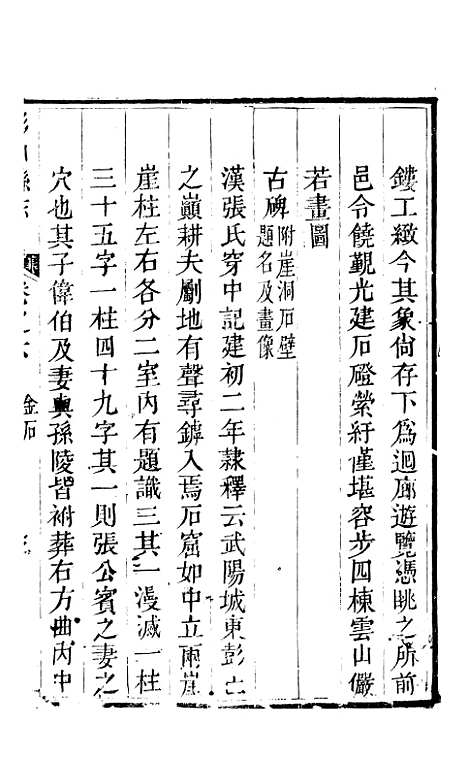 鏤工緻今其象尙存下爲迴廊遊覽憑眺之所前
邑令饒覲光建石磴縈紆僅堪容步四棟雲山儼
若畫圖
古碑附崖洞石壁
題名及畫像
漢張氏穿中記建初二年隸釋云武陽城東彭亡
之巔耕夫劚地有聲尋罅入焉石窟如屮立兩崖
崖柱左右各分二室內有題識三其一漫滅一柱
三十五字一柱四十九字其一則張公賓之妻之
穴也其子偉伯及妻與孫陵皆祔葬右方曲內中
金石